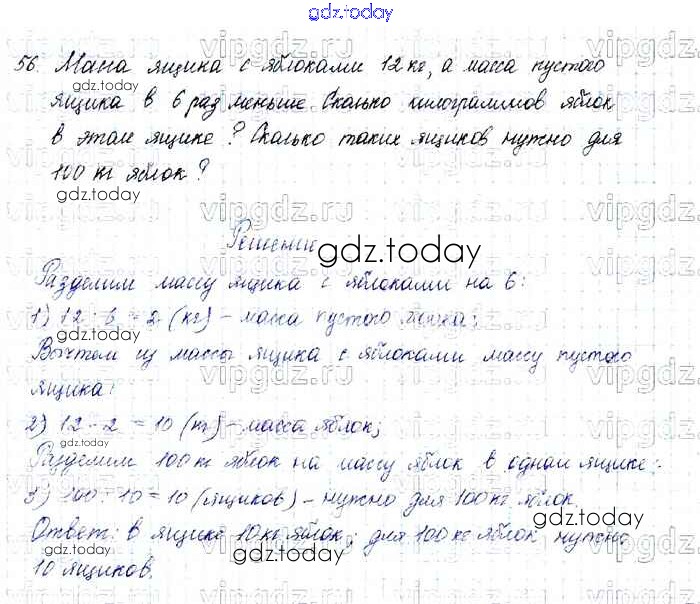 gdz.today
56. Масса ящика с яблоками 12 кг, а масса пустого
ящика в 6 раз меньше. Сколько килограммов яблок
в этом ящике? Сколько таких ящиков нужно для
100 кг яблок?
gdz.today
vipgdz.ru
Решение
gdz.today
Разделим массу ящика с яблоками на 6:
1) 12 : 6 = 2 (кг) - масса пустого ящика;
Вычтем из массы ящика с яблоками массу пустого
ящика:
2) 12 - 2 = 10 (кг) - масса яблок;
gdz.today
Разделим 100 кг яблок на массу яблок в одном ящике:
3) 100 : 10 = 10 (ящиков) - нужно для 100 кг яблок.
gdz.today
Ответ: в ящике 10 кг яблок; для 100 кг яблок нужно
gdz.today
10 ящиков.